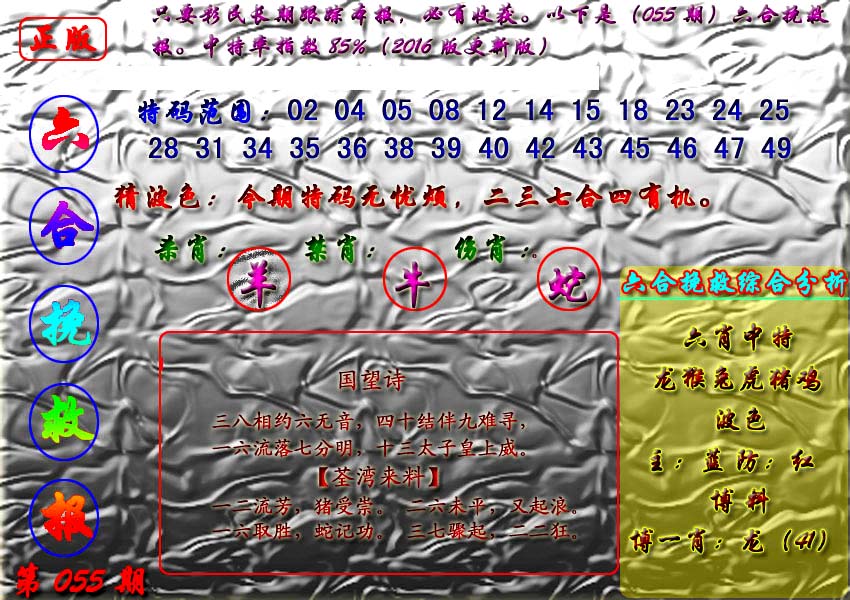 正版
只要彩民长期跟踪本报，必有收获。以下是（055 期）六合挽救
报。中特率指数 85%（2016 版更新版）
六
合
挽
救
报
第 055 期
特码范围：02 04 05 08 12 14 15 18 23 24 25
28 31 34 35 36 38 39 40 42 43 45 46 47 49
猜波色：今期特码无忧烦，二三七合四有机。
杀肖：羊 禁肖：牛 伤肖：蛇。
国望诗
三八相约六无音，四十结伴九难寻，
一六流落七分明，十三太子皇上威。
【荃湾来料】
一二流芳，猪受崇。 二六未平，又起浪。
一六取胜，蛇记功。 三七骤起，二二狂。
六合挽救综合分析
六肖中特
龙猴兔虎猪鸡
波色
主：蓝防：红
博料
博一肖：龙（41）